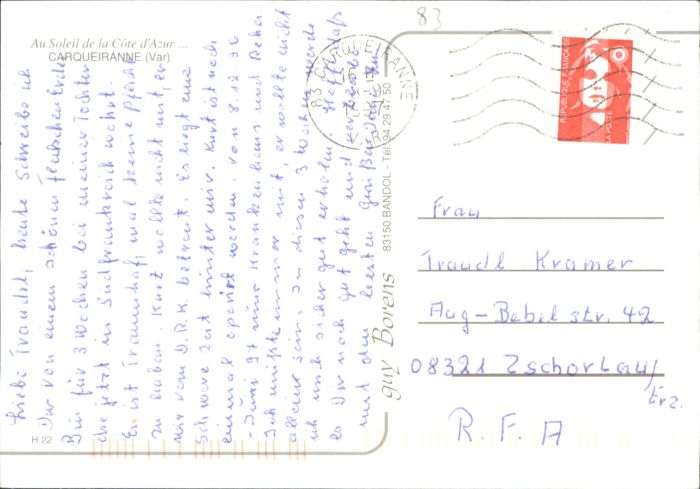 83
Au Soleil de la Côte d'Azur ...
CARQUEIRANNE (Var)
Liebe Traudel, heute Schreibe ich
Dir von einem schönen Fleckchen Erde
Bin für 3 Wochen bei meiner Tochter
die jetzt in Südfrankreich wohnt
Es ist Traumhaft mal keine Pflicht
zu haben. Kurz wollte nicht mit, er
wir vom D.R.K. betreut. Es liegt eine
Schwere Zeit hinter mir. Kurt ist noch
einmal operirt worden. vom 8.12.96
- Juni 97 nur Krankenhaus und Reha.
Ich müßte immer mit, er wollte nicht
allein sein. In diesen 3 Wochen werde
ich mich sicher gut erholen. Hoffe daß
es Dir noch gut geht und verbleibe
mit den besten Grüßen
83 CARQUEIRANNE
REPUBLIQUE FRANÇAISE
LA POSTE
guy Borens
83150 BANDOL - Tél. 94 29 47 50
Frau
Traudl Kramer
Aug-Bebel str. 42
08321 Zschorlau/
Erz.
R. F. A
H 22